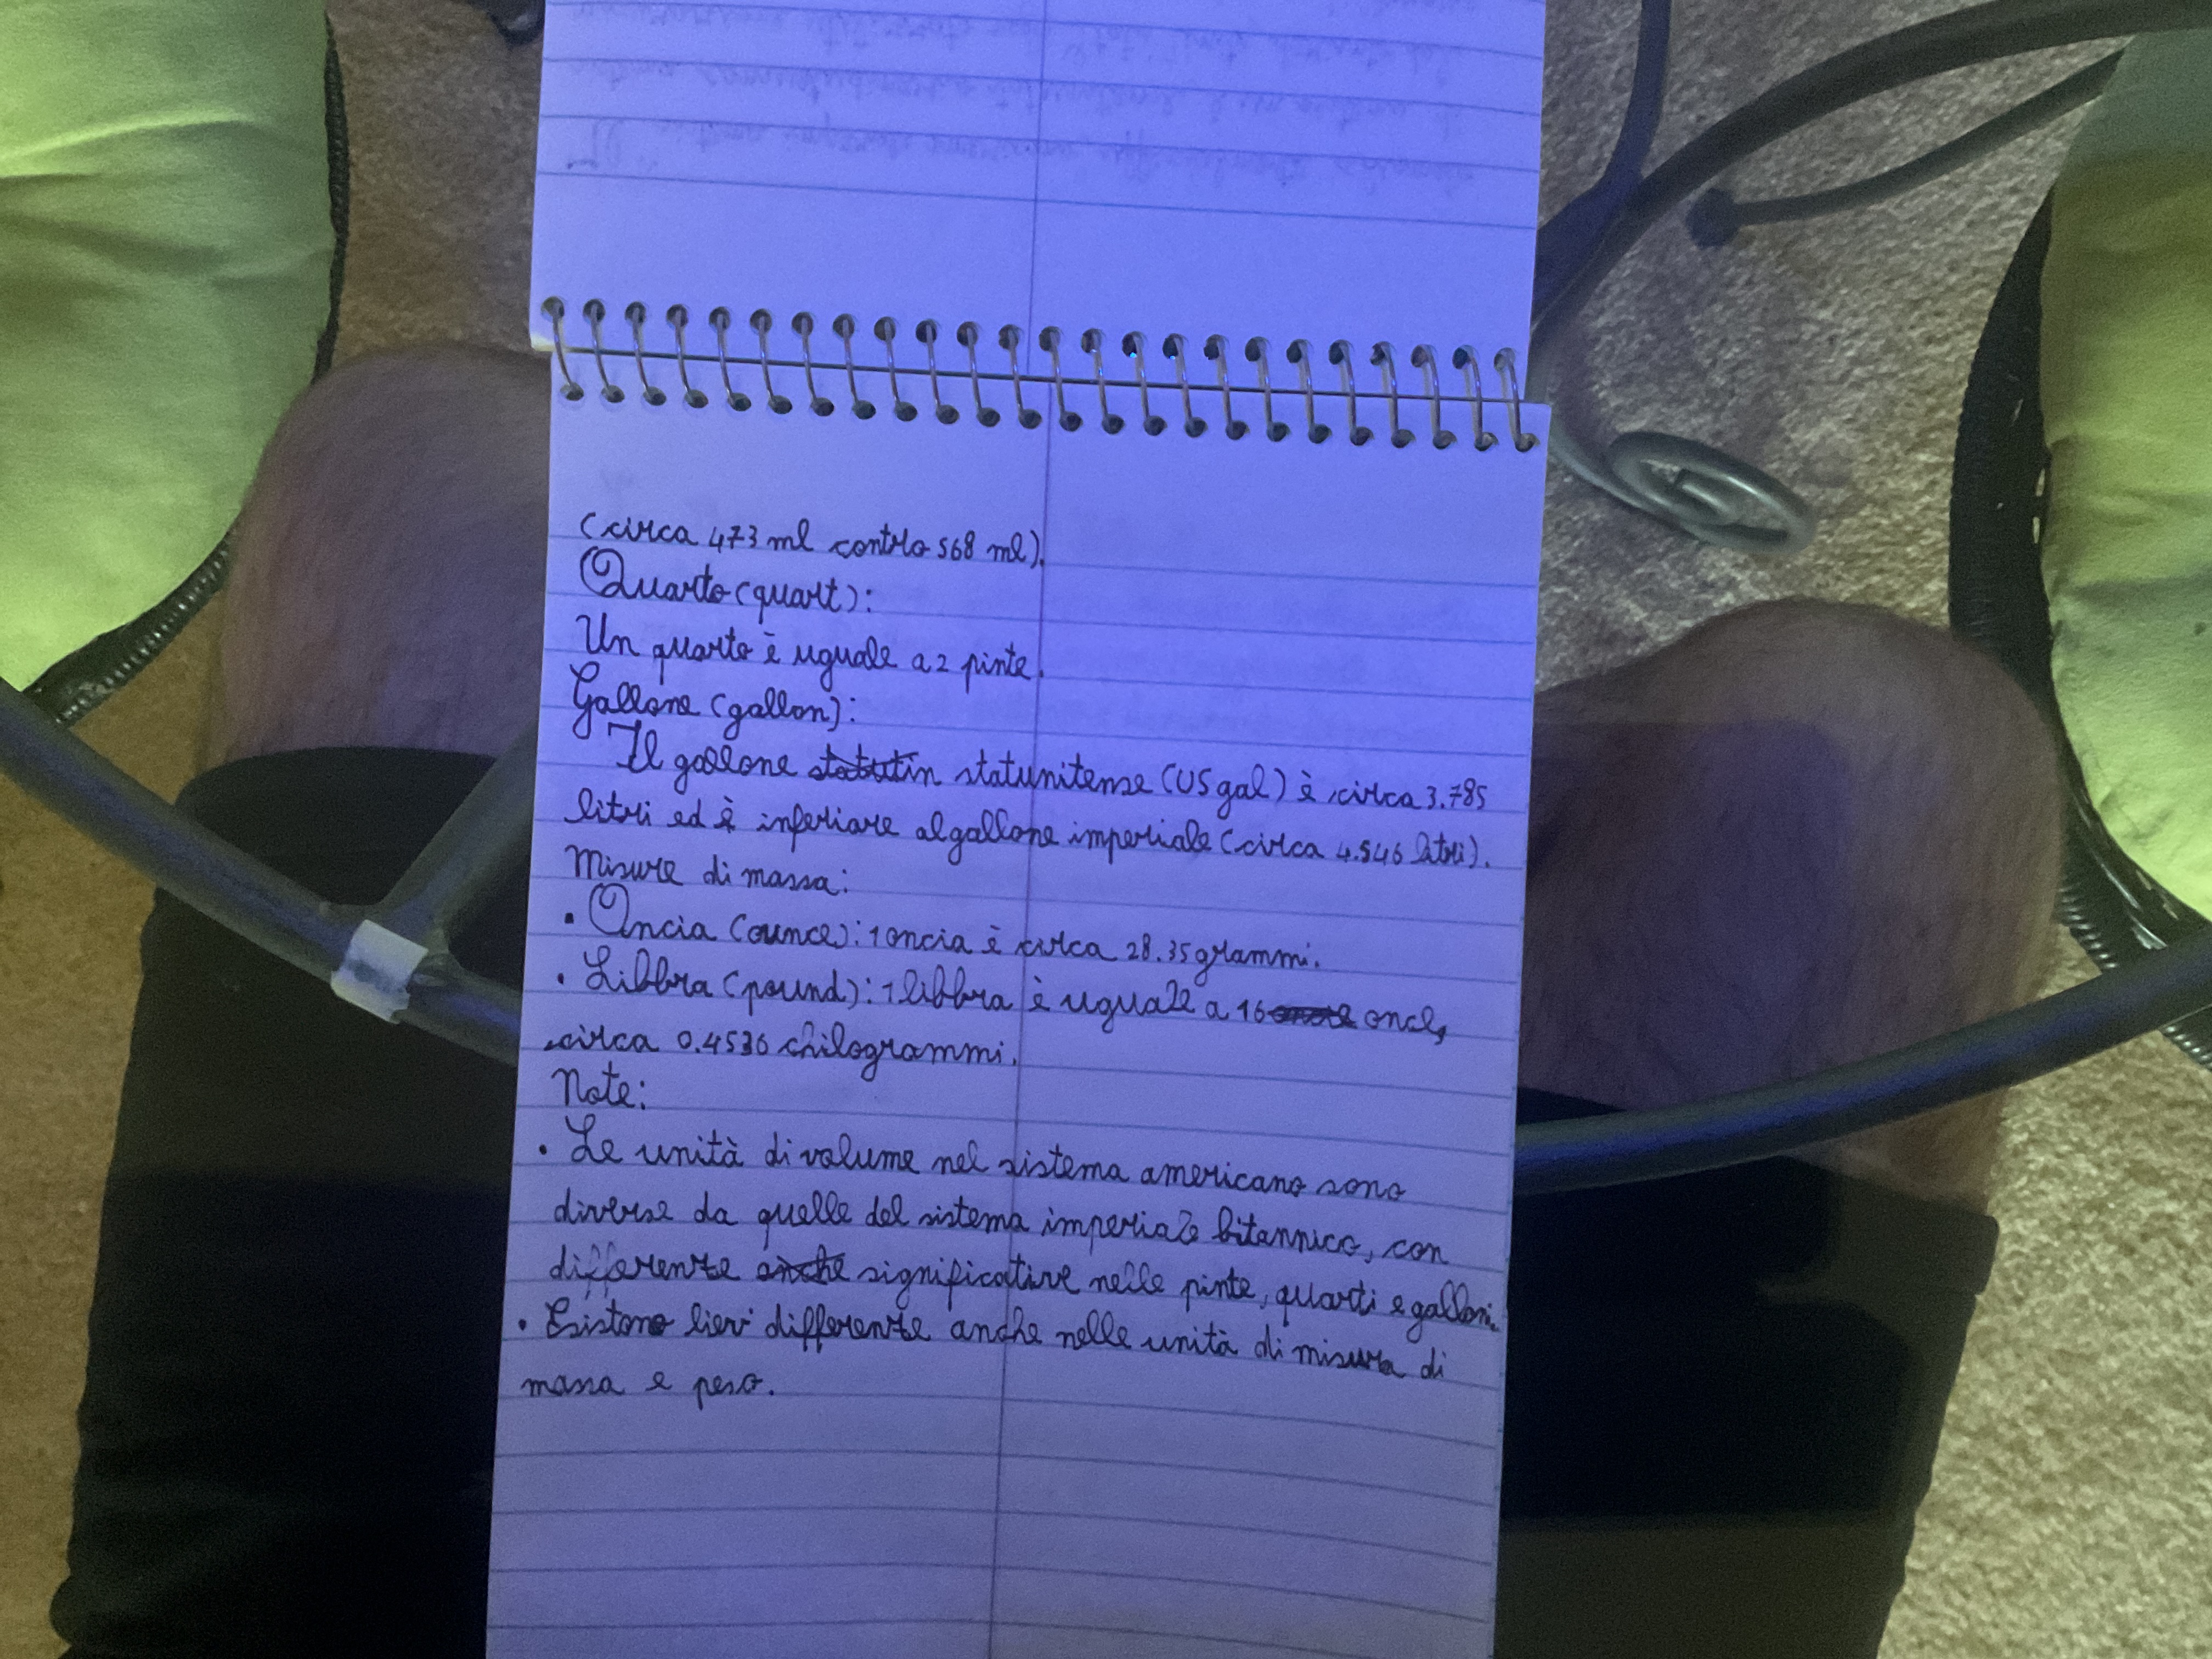 (circa 473 ml contro 568 ml).
Quarto (quart):
Un quarto è uguale a 2 pinte.
Gallone (gallon):
Il gallone statunitense (US gal) è circa 3.785
litri ed è inferiore al gallone imperiale (circa 4.546 litri).
Misure di massa:
• Oncia (ounce): 1 oncia è circa 28.35 grammi.
• Libbra (pound): 1 libbra è uguale a 16 once,
circa 0.4536 chilogrammi.
Note:
• Le unità di volume nel sistema americano sono
diverse da quelle del sistema imperiale bitannico, con
differenze significative nelle pinte, quarti e galloni.
• Esistono lievi differenze anche nelle unità di misura di
massa e peso.